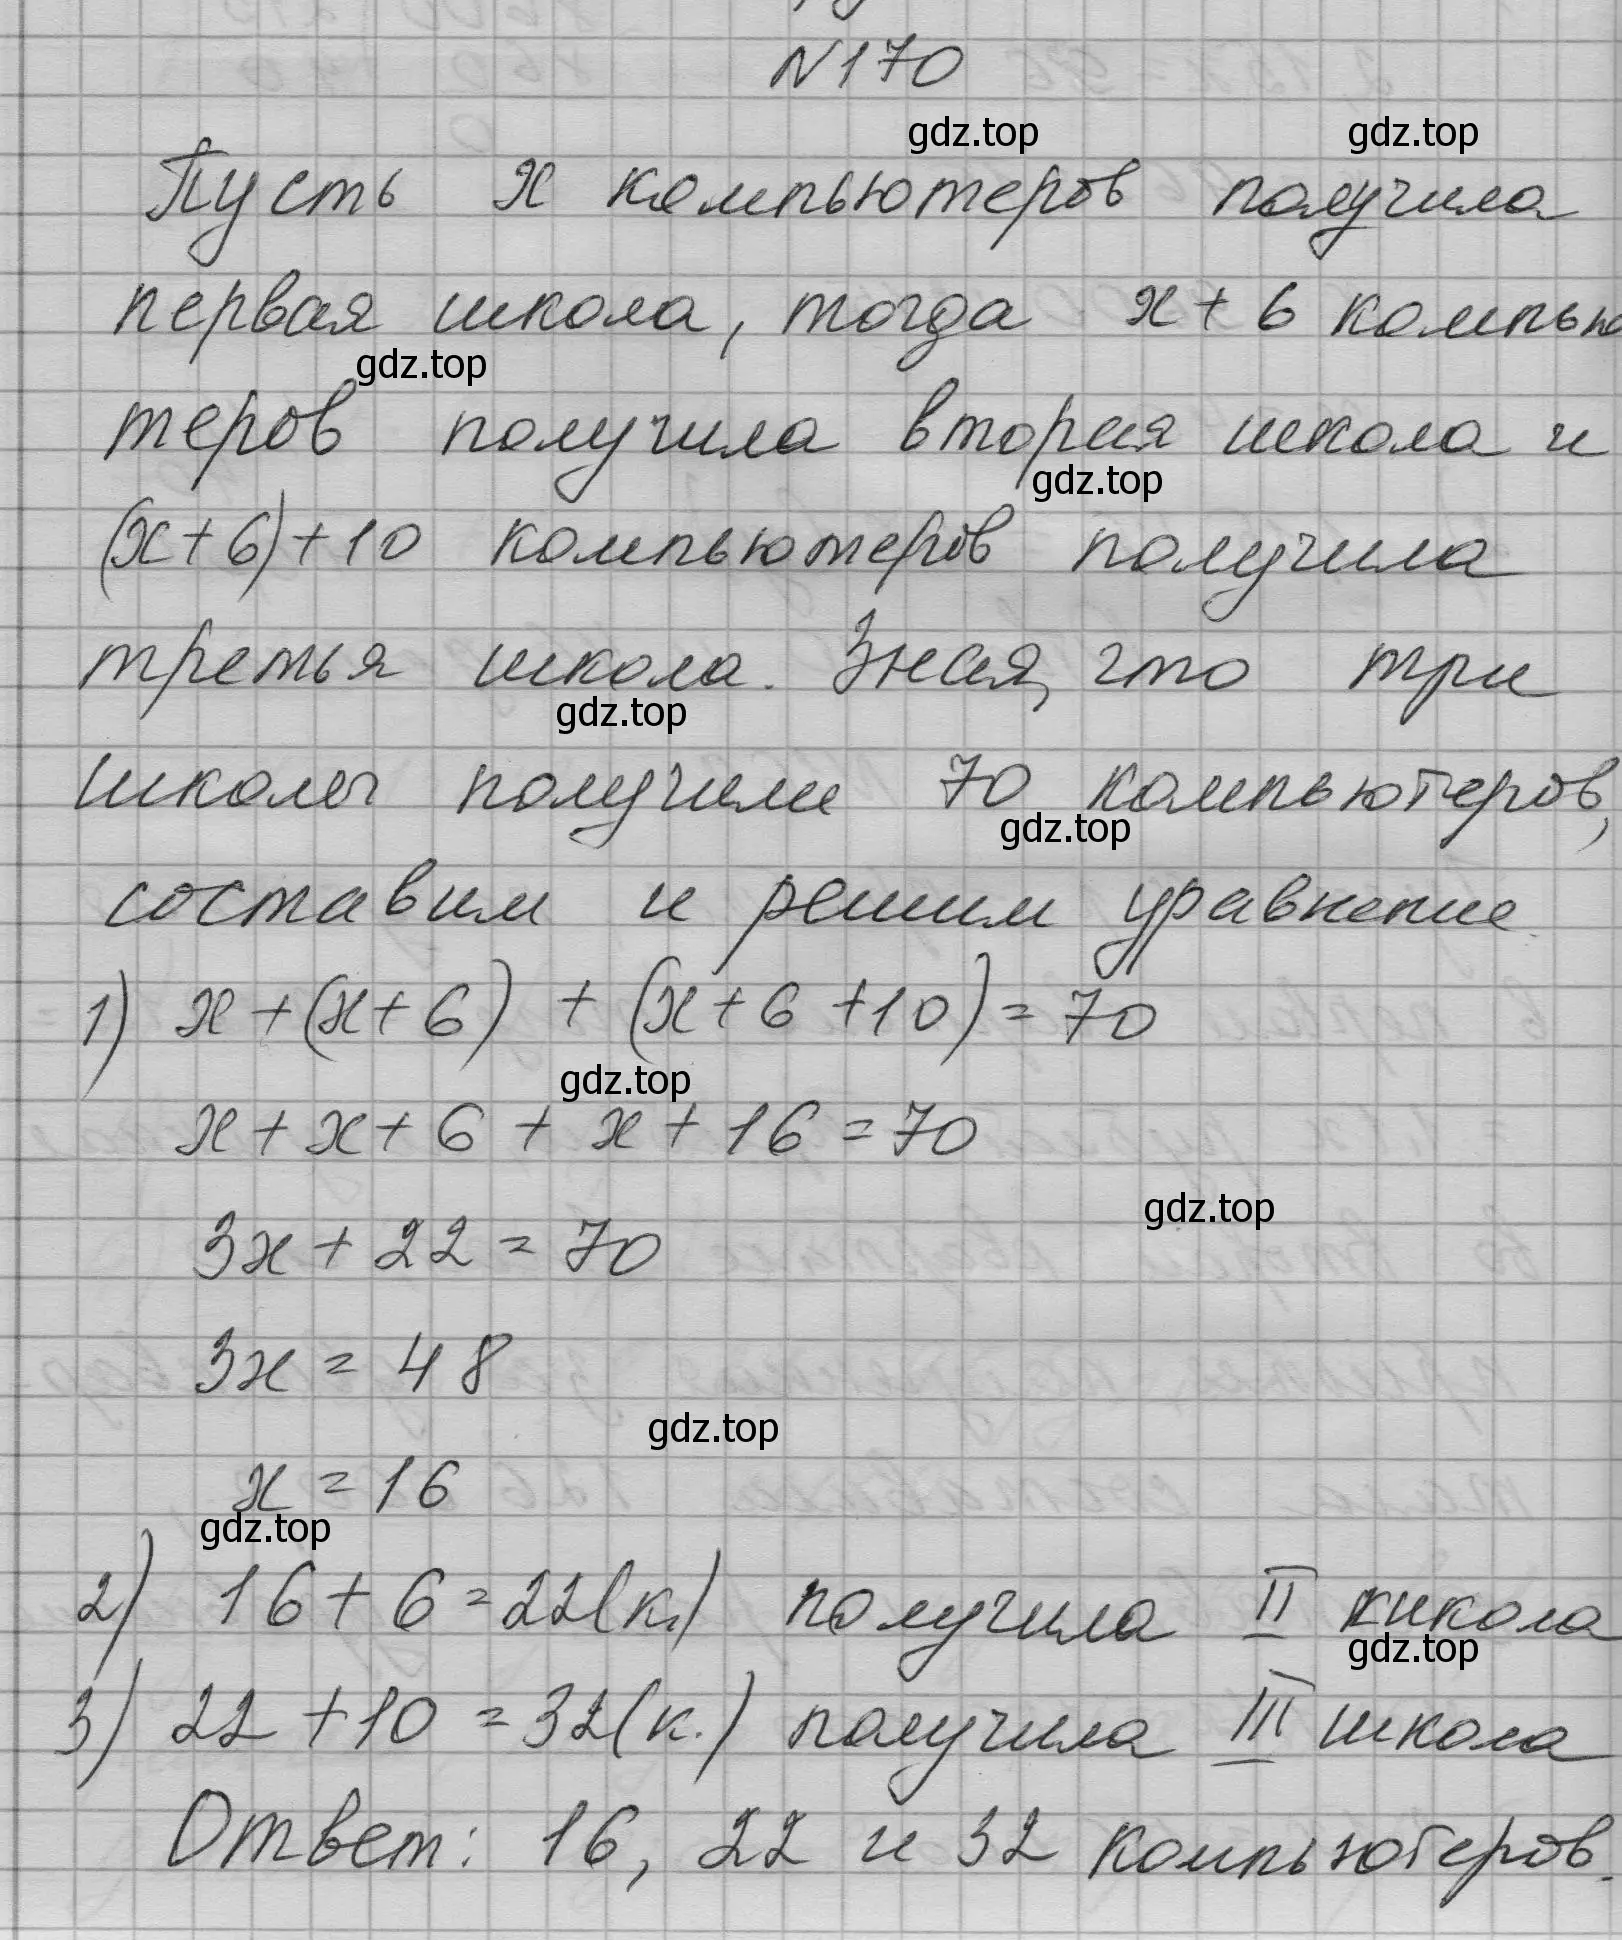 N170
gdz.top gdz.top
Пусть x компьютеров получила
первая школа, тогда x + 6 компью
gdz.top
теров получила вторая школа и
gdz.top
(x + 6) + 10 компьютеров получила
третья школа. Зная, что три
gdz.top
школы получили 70 компьютеров,
gdz.top
составим и решим уравнение.
1) x + (x + 6) + (x + 6 + 10) = 70
gdz.top
x + x + 6 + x + 16 = 70
gdz.top
3x + 22 = 70
3x = 48
gdz.top
x = 16
gdz.top
2) 16 + 6 = 22 (к.) получила II школа
gdz.top
3) 22 + 10 = 32 (к.) получила III школа
Ответ: 16, 22 и 32 компьютеров.